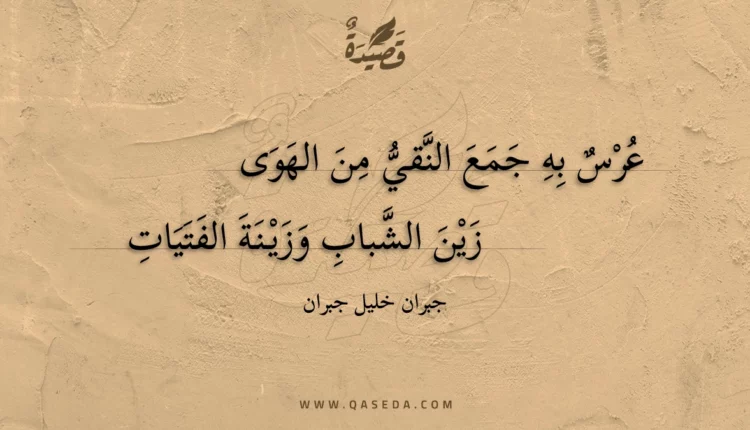 قَصِيدَةٌ
عُرْسٌ بِهِ جَمَعَ النَّقيُّ مِنَ الهَوَى
زَيْنَ الشَّبابِ وَزَيْنَةَ الفَتَيَاتِ
جبران خليل جبران
WWW.QASEDA.COM